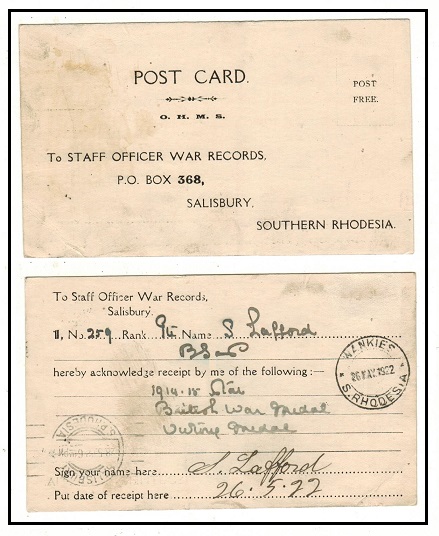 POST CARD.
POST
FREE.
O. H. M. S.
To STAFF OFFICER WAR RECORDS,
P.O. BOX 368,
SALISBURY.
SOUTHERN RHODESIA.
To Staff Officer War Records,
Salisbury.
I, No. 259 Rank Name S Lafford
hereby acknowledge receipt by me of the following :—
1914-15 Star
British War Medal
Victory Medal
Sign your name here S. Lafford
Put date of receipt here 26.5.22
WANKIES
26 MAY 1922
S. RHODESIA
SALISBURY
S. RHODESIA